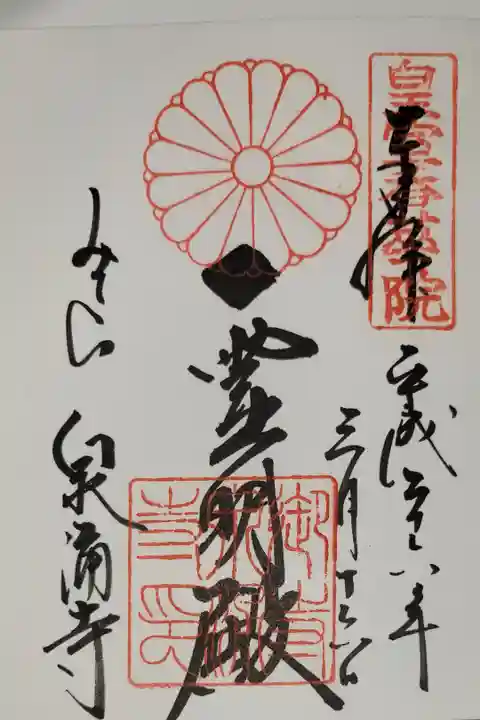 皇室香華院
奉拝
平成二十六年
三月
霊明殿
御寺
泉涌
寺印
みてら 泉涌寺